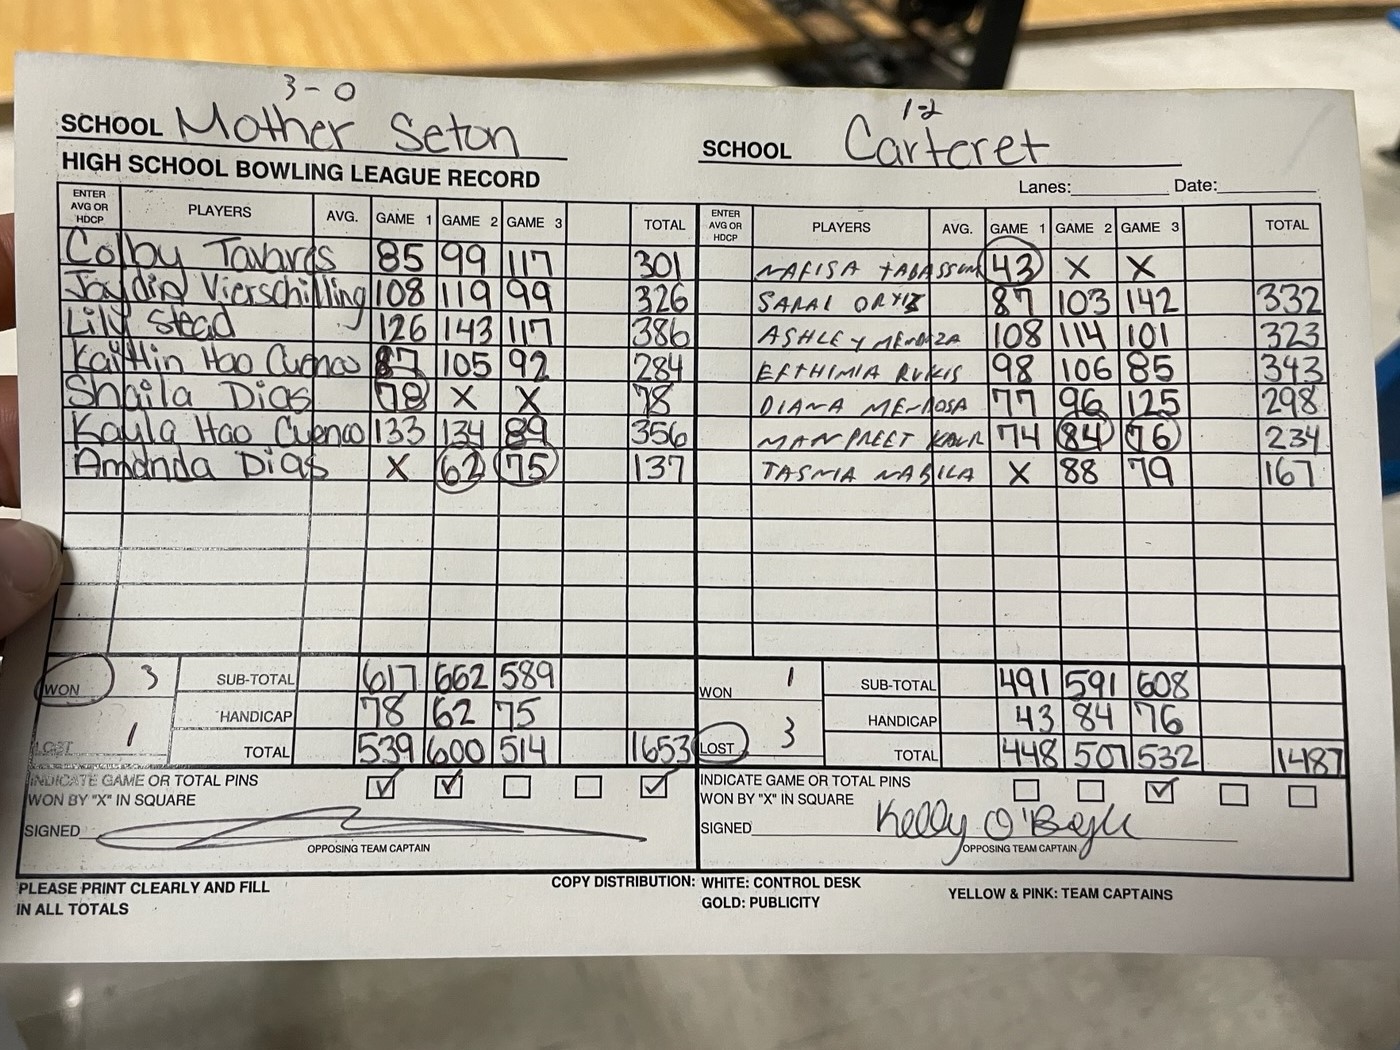 3-0
SCHOOL Mother Seton
1-2
SCHOOL Carteret
HIGH SCHOOL BOWLING LEAGUE RECORD
Lanes: Date:
ENTER AVG OR HDCP PLAYERS AVG. GAME 1 GAME 2 GAME 3 TOTAL
Colby Tavares 85 99 117 301
Jaydin Vierschilling 108 119 99 326
Lily Stead 126 143 117 386
Kaitlin Hao Cuenco 87 105 92 284
Shaila Dias 78 X X 78
Kayla Hao Cuenco 133 134 89 356
Amanda Dias X 62 75 137
WON 3
LOST 1
SUB-TOTAL 617 662 589
HANDICAP 78 62 75
TOTAL 539 600 514 1653
INDICATE GAME OR TOTAL PINS
WON BY "X" IN SQUARE
SIGNED
OPPOSING TEAM CAPTAIN
ENTER AVG OR HDCP PLAYERS AVG. GAME 1 GAME 2 GAME 3 TOTAL
NAFISA TABASSUM 43 X X
SARAI ORTIZ 87 103 142 332
ASHLEY MENDOZA 108 114 101 323
EFTHIMIA 98 106 85 343
DIANA MENDOSA 77 96 125 298
MANPREET KAUR 74 84 76 234
TASNIA NABILA X 88 79 167
WON 1
LOST 3
SUB-TOTAL 491 591 608
HANDICAP 43 84 76
TOTAL 448 507 532 1487
INDICATE GAME OR TOTAL PINS
WON BY "X" IN SQUARE
SIGNED Kelly O'Boyle
OPPOSING TEAM CAPTAIN
PLEASE PRINT CLEARLY AND FILL
IN ALL TOTALS
COPY DISTRIBUTION: WHITE: CONTROL DESK
GOLD: PUBLICITY
YELLOW & PINK: TEAM CAPTAINS